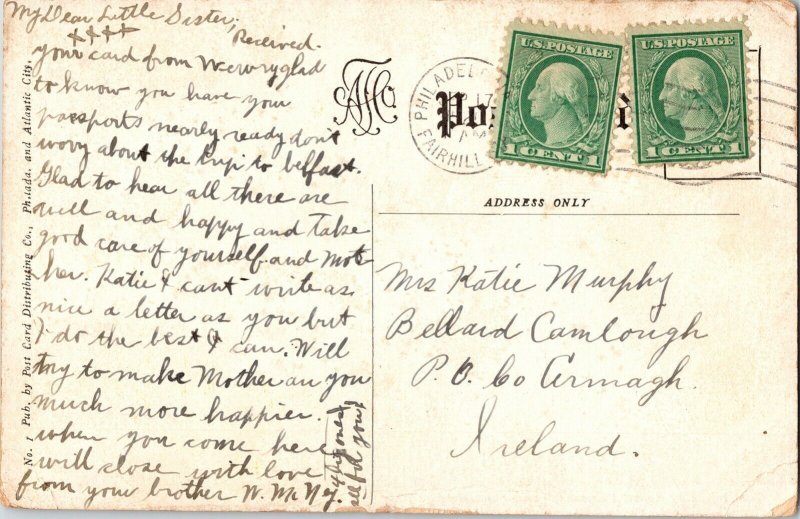 My Dear Little Sister,
xxxx Received.
your card from glad
to know you have your
passports nearly ready dont
worry about the trip to belfast.
Glad to hear all there are
well and happy and take
good care of yourself and Mot-
her. Katie I cant write as
nice a letter as you but
I do the best I can. Will
try to make Mother an you
much more happier.
when you come here
will close with love
from your brother W. Mc
self & you
No. 1 Pub. by Post Card Distributing Co., Philada. and Atlantic City.
PHILADEL
17
AM
FAIRHILL
Po
U.S.POSTAGE
1 CENT 1
U.S.POSTAGE
1 CENT 1
ADDRESS ONLY
Mrs Katie Murphy
Bellard Camlough
P.O. Co Armagh.
Ireland.